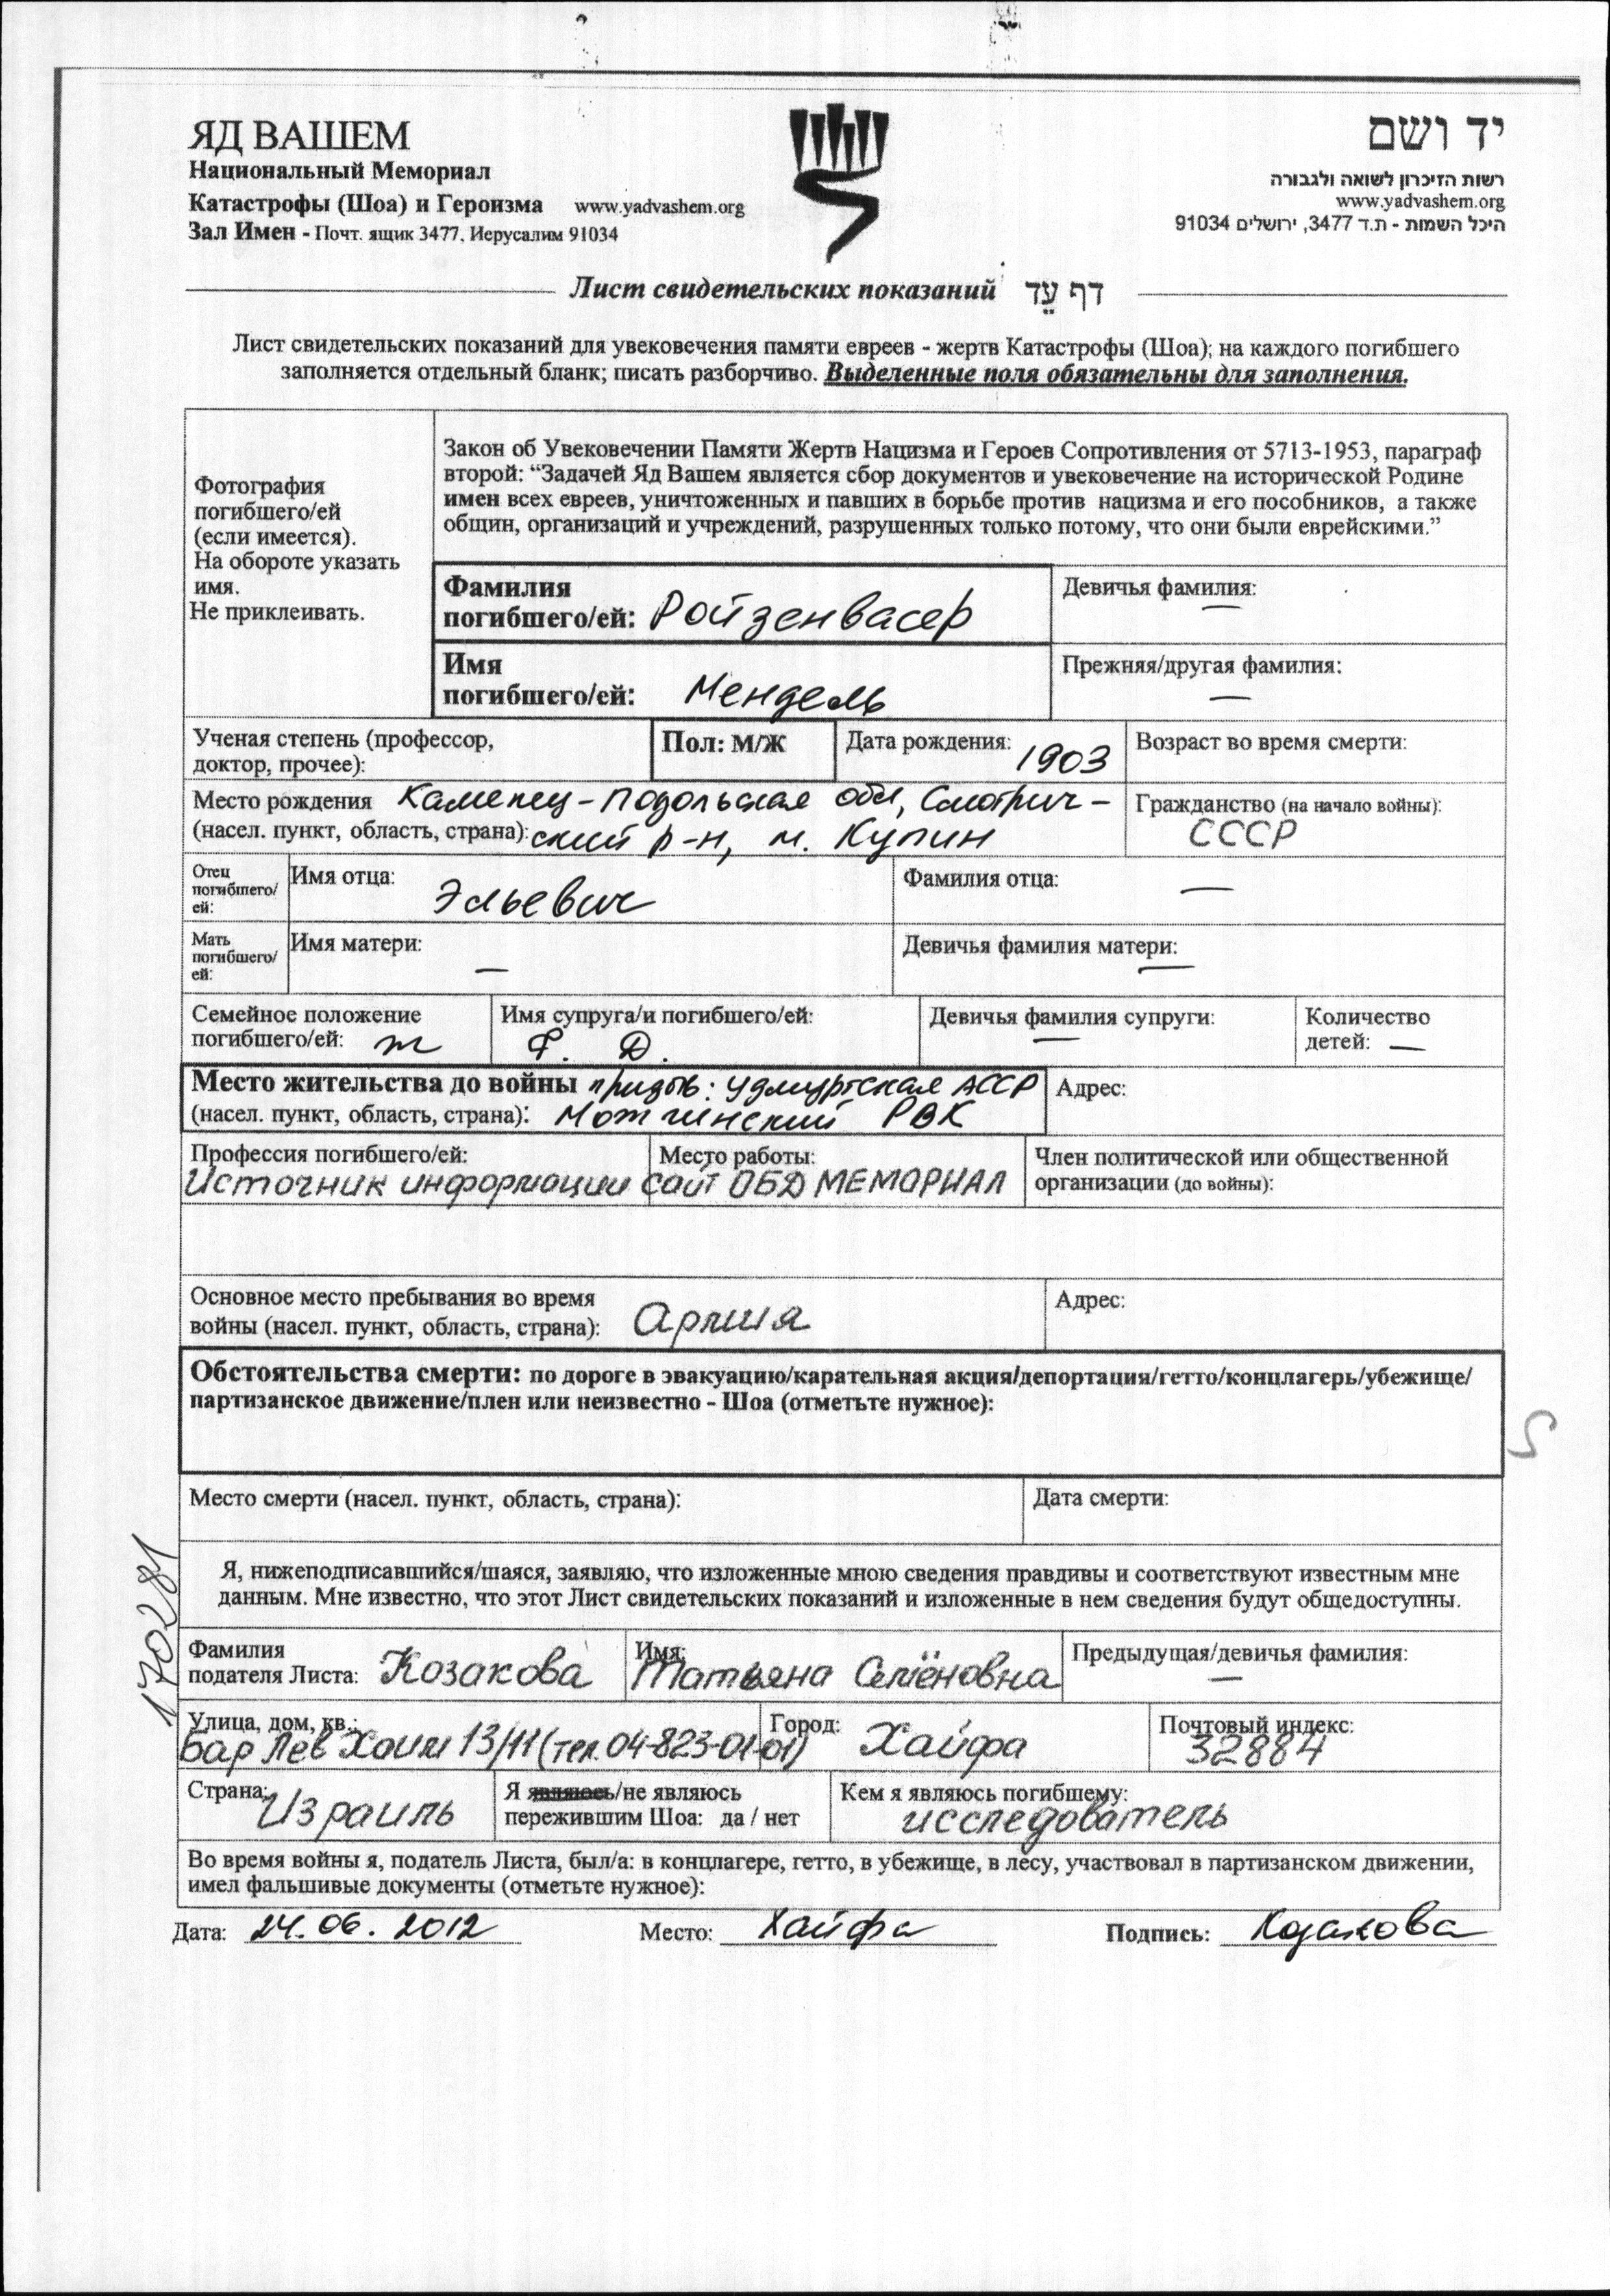 ЯД ВАШЕМ
Национальный Мемориал
Катастрофы (Шоа) и Героизма www.yadvashem.org
Зал Имен - Почт. ящик 3477, Иерусалим 91034
יד ושם
רשות הזיכרון לשואה ולגבורה
www.yadvashem.org
היכל השמות - ת.ד 3477, ירושלים 91034
Лист свидетельских показаний דף עֵד
Лист свидетельских показаний для увековечения памяти евреев - жертв Катастрофы (Шоа); на каждого погибшего
заполняется отдельный бланк; писать разборчиво. Выделенные поля обязательны для заполнения.
Фотография
погибшего/ей
(если имеется).
На обороте указать
имя.
Не приклеивать.
Закон об Увековечении Памяти Жертв Нацизма и Героев Сопротивления от 5713-1953, параграф
второй: “Задачей Яд Вашем является сбор документов и увековечение на исторической Родине
имен всех евреев, уничтоженных и павших в борьбе против нацизма и его пособников, а также
общин, организаций и учреждений, разрушенных только потому, что они были еврейскими.”
Фамилия
погибшего/ей: Ройзенвасер
Девичья фамилия:
—
Имя
погибшего/ей: Мендель
Прежняя/другая фамилия:
—
Ученая степень (профессор,
доктор, прочее):
Пол: М/Ж
Дата рождения: 1903
Возраст во время смерти:
Место рождения Каменец-Подольская обл, Смотрич-
(насел. пункт, область, страна): ский р-н, м. Купин
Гражданство (на начало войны):
СССР
Отец
погибшего/
ей:
Имя отца: Эльевич
Фамилия отца: —
Мать
погибшего/
ей:
Имя матери: —
Девичья фамилия матери: —
Семейное положение
погибшего/ей: ж
Имя супруга/и погибшего/ей:
Ф. Д.
Девичья фамилия супруги:
—
Количество
детей: —
Место жительства до войны призыв: Удмуртская АССР
(насел. пункт, область, страна): Можгинский РВК
Адрес:
Профессия погибшего/ей: Место работы:
Источник информации сайт ОБД МЕМОРИАЛ
Член политической или общественной
организации (до войны):
Основное место пребывания во время
войны (насел. пункт, область, страна): Армия
Адрес:
Обстоятельства смерти: по дороге в эвакуацию/карательная акция/депортация/гетто/концлагерь/убежище/
партизанское движение/плен или неизвестно - Шоа (отметьте нужное):
Место смерти (насел. пункт, область, страна):
Дата смерти:
170281
Я, нижеподписавшийся/шаяся, заявляю, что изложенные мною сведения правдивы и соответствуют известным мне
данным. Мне известно, что этот Лист свидетельских показаний и изложенные в нем сведения будут общедоступны.
Фамилия
подателя Листа: Козакова
Имя:
Татьяна Семёновна
Предыдущая/девичья фамилия:
—
Улица, дом, кв.:
Бар Лев Хаим 13/11 (тел. 04-823-01-01)
Город: Хайфа
Почтовый индекс:
32884
Страна: Израиль
Я являюсь/не являюсь
пережившим Шоа: да / нет
Кем я являюсь погибшему:
исследователь
Во время войны я, податель Листа, был/а: в концлагере, гетто, в убежище, в лесу, участвовал в партизанском движении,
имел фальшивые документы (отметьте нужное):
Дата: 24.06.2012 Место: Хайфа Подпись: Козакова